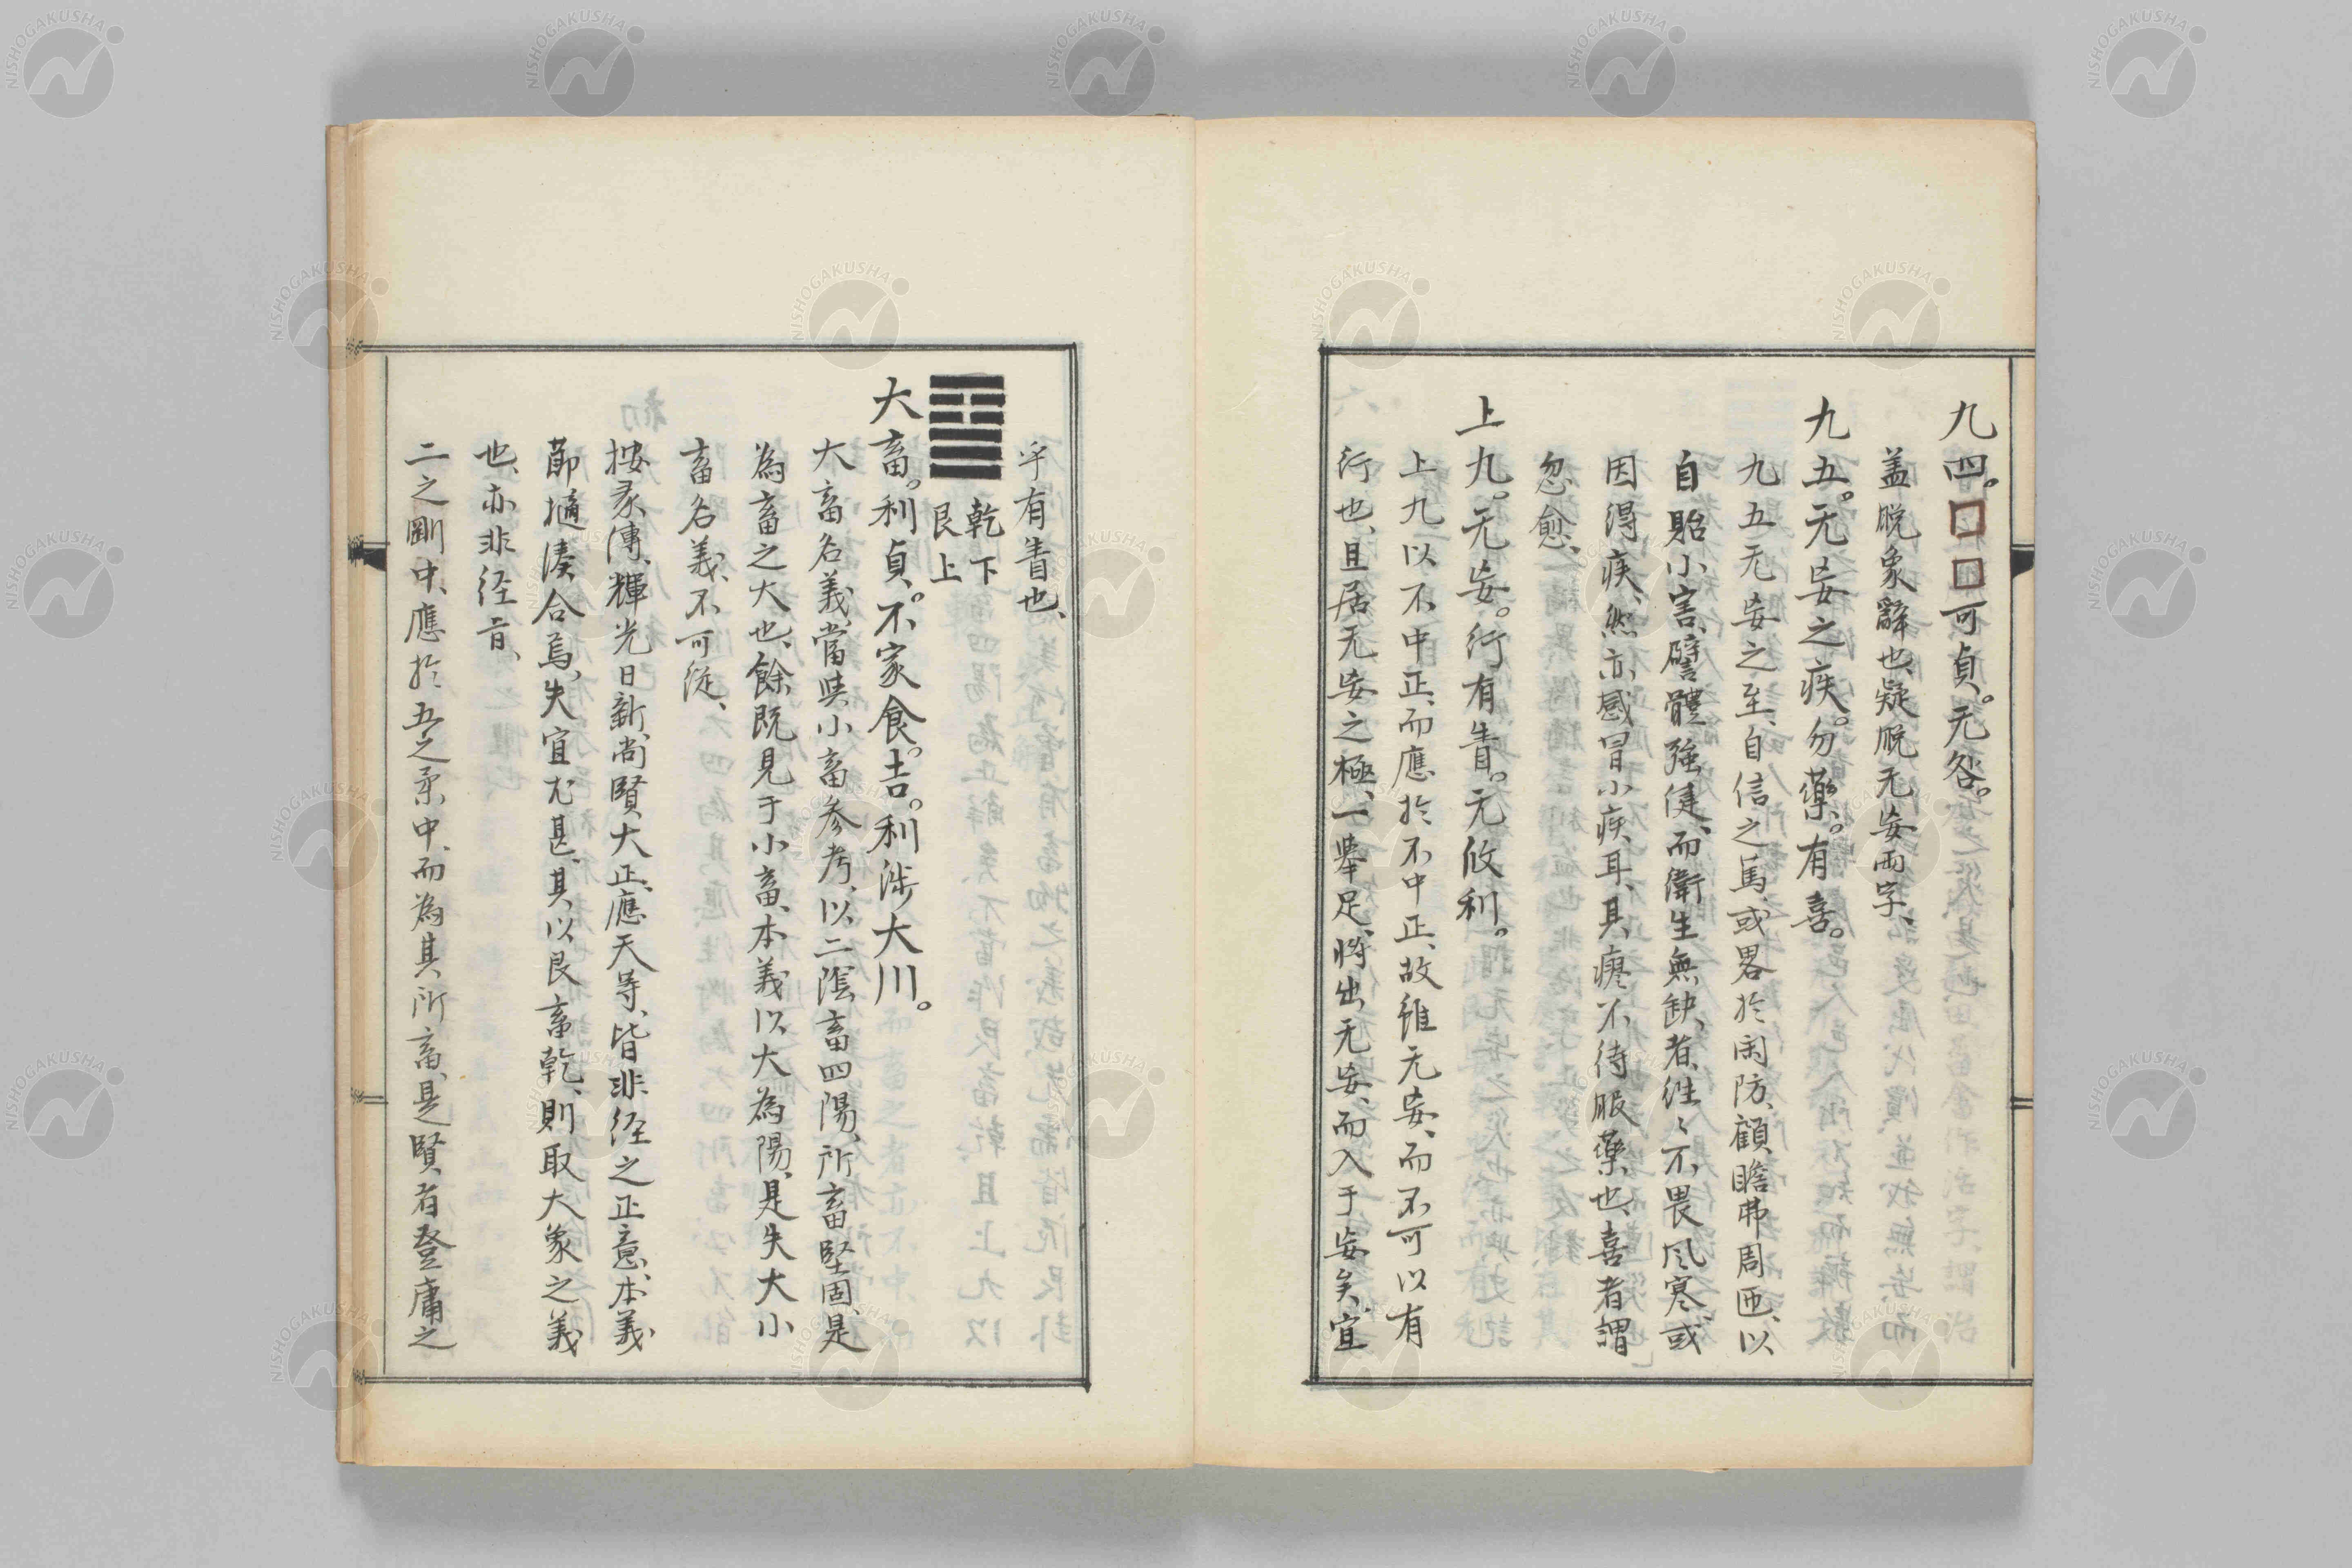 九四。□□可貞。无咎。
蓋脱象辭也、疑脱无妄兩字、
九五。无妄之疾。勿藥。有喜。
九五无妄之至、自信之馬、或畧於閑防、顧瞻弗周匝、以
自貽小害、譬體強健、而衛生無缺者、往々不畏風寒、或
因得疾、然亦感冒小疾耳、其瘳不待服藥也、喜者謂
忽愈、
上九。无妄。行有眚。无攸利。
上九以不中正、而應於不中正、故雖无妄、而不可以有
行也、且居无妄之極、一舉足、將出无妄、而入于妄矣、宜
乎有眚也、
乾下
艮上
大畜。利貞。不家食。吉。利涉大川。
大畜名義、當與小畜参考、以二陰畜四陽、所畜堅固、是
為畜之大也、餘既見于小畜、本義以大為陽、是失大小
畜名義、不可從、
按彖傳、輝光日新、尚賢、大正、應天等、皆非経之正意、本義
節擿湊合焉、失宜尤甚、其以艮畜乾、則取大象之義
也、亦非経旨、
二之剛中、應於五之柔中、而為其所畜、是賢者登庸之
NISHOGAKUSHA